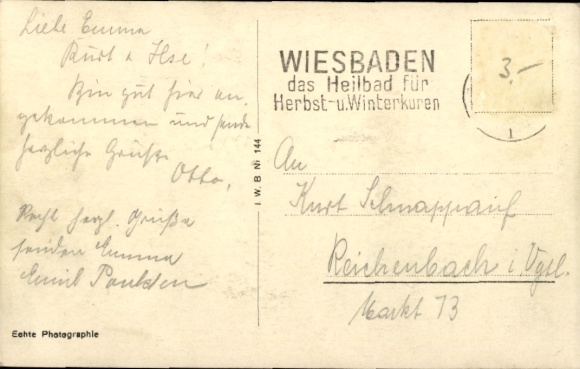 Liebe Emma
Kurt u Ilse!
Bin gut hier an,
gekommen und sende
herzliche Grüße
Otto,
Recht herzl. Grüße
senden Emma
Emil
Echte Photographie
I. W. B Nr 144
WIESBADEN
das Heilbad für
Herbst-u.Winterkuren
3.-
1
An
Kurt Schnappauf
Reichenbach i. Vgtl.
Markt 13